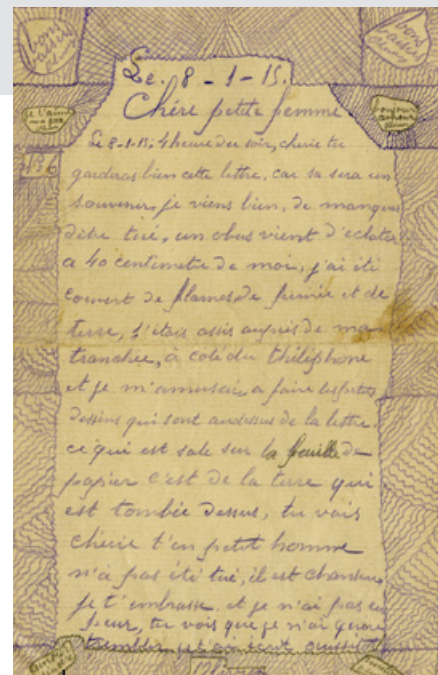 bons
baisers
Le. 8 - 1 - 15.
bons
baisers
Chère petite femme
je t'aime
bonjour
amour
136
Le 8-1-15; 4 heure du soir, cherie tu
garderas bien cette lettre, car sa sera un
souvenir, je viens bien, de manquer
d'être tué, un obus vient d'éclater
a 40 centimetre de moi, j'ai été
couvert de flames de fumée et de
terre, j'étais assis auprès de ma
tranchée, à coté du théléphone
et je m'amusais a faire les petits
dessins qui sont audessus de la lettre.
ce qui est sale sur la feuille de
papier c'est de la terre qui
est tombée dessus, tu vois
chérie t'en petit homme
n'a pas été tué, il est chanseux
je t'embrasse, et je n'ai pas eu
peur, tu vois que je n'ai guère
tremblé